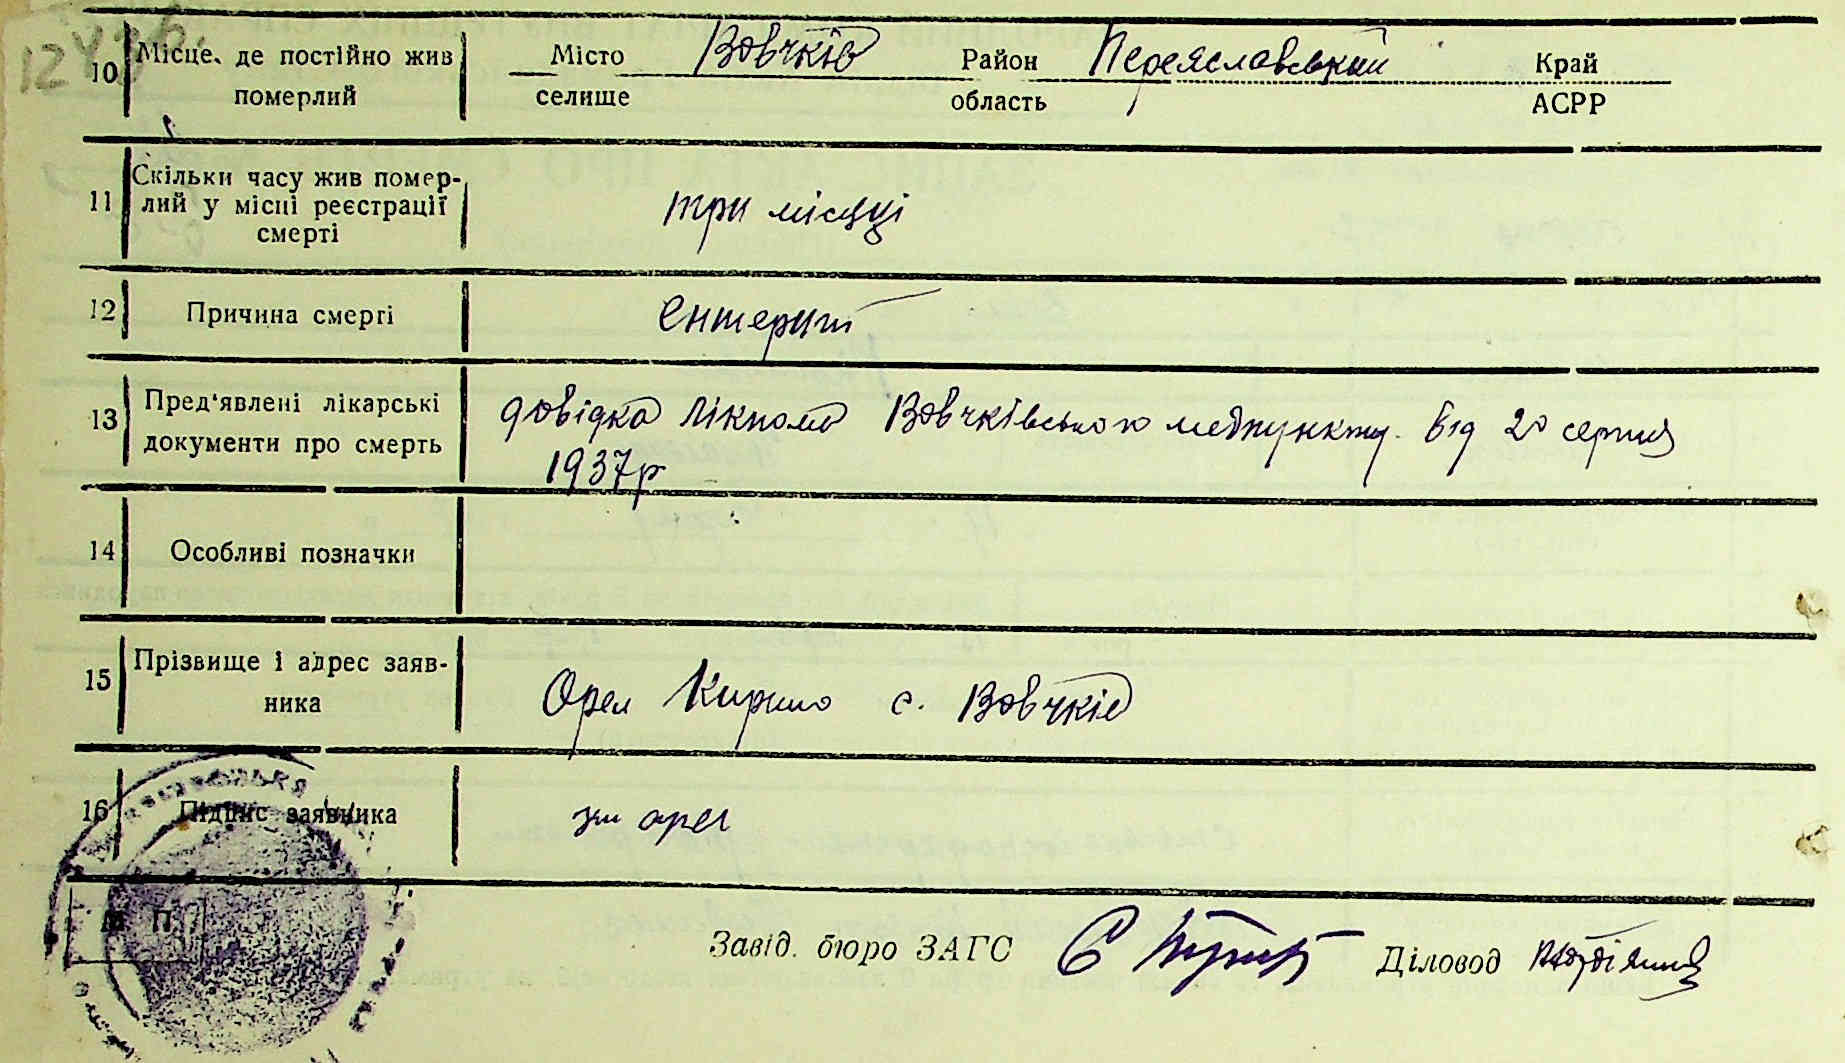 10 Місце, де постійно жив померлий
Місто селище Вовчків Район область Переяславський Край АСРР
11 Скільки часу жив помер-
лий у місці реєстрації
смерті
три місяці
12 Причина смерті ентерит
13 Пред'явлені лікарські
документи про смерть
довідка лікпома Вовчківського медпункту від 20 серпня
1937р
14 Особливі позначки
15 Прізвище і адрес заяв-
ника
Орел Кирило с. Вовчків
16 Підпис заявника
орел
М П
Завід. бюро ЗАГС Діловод